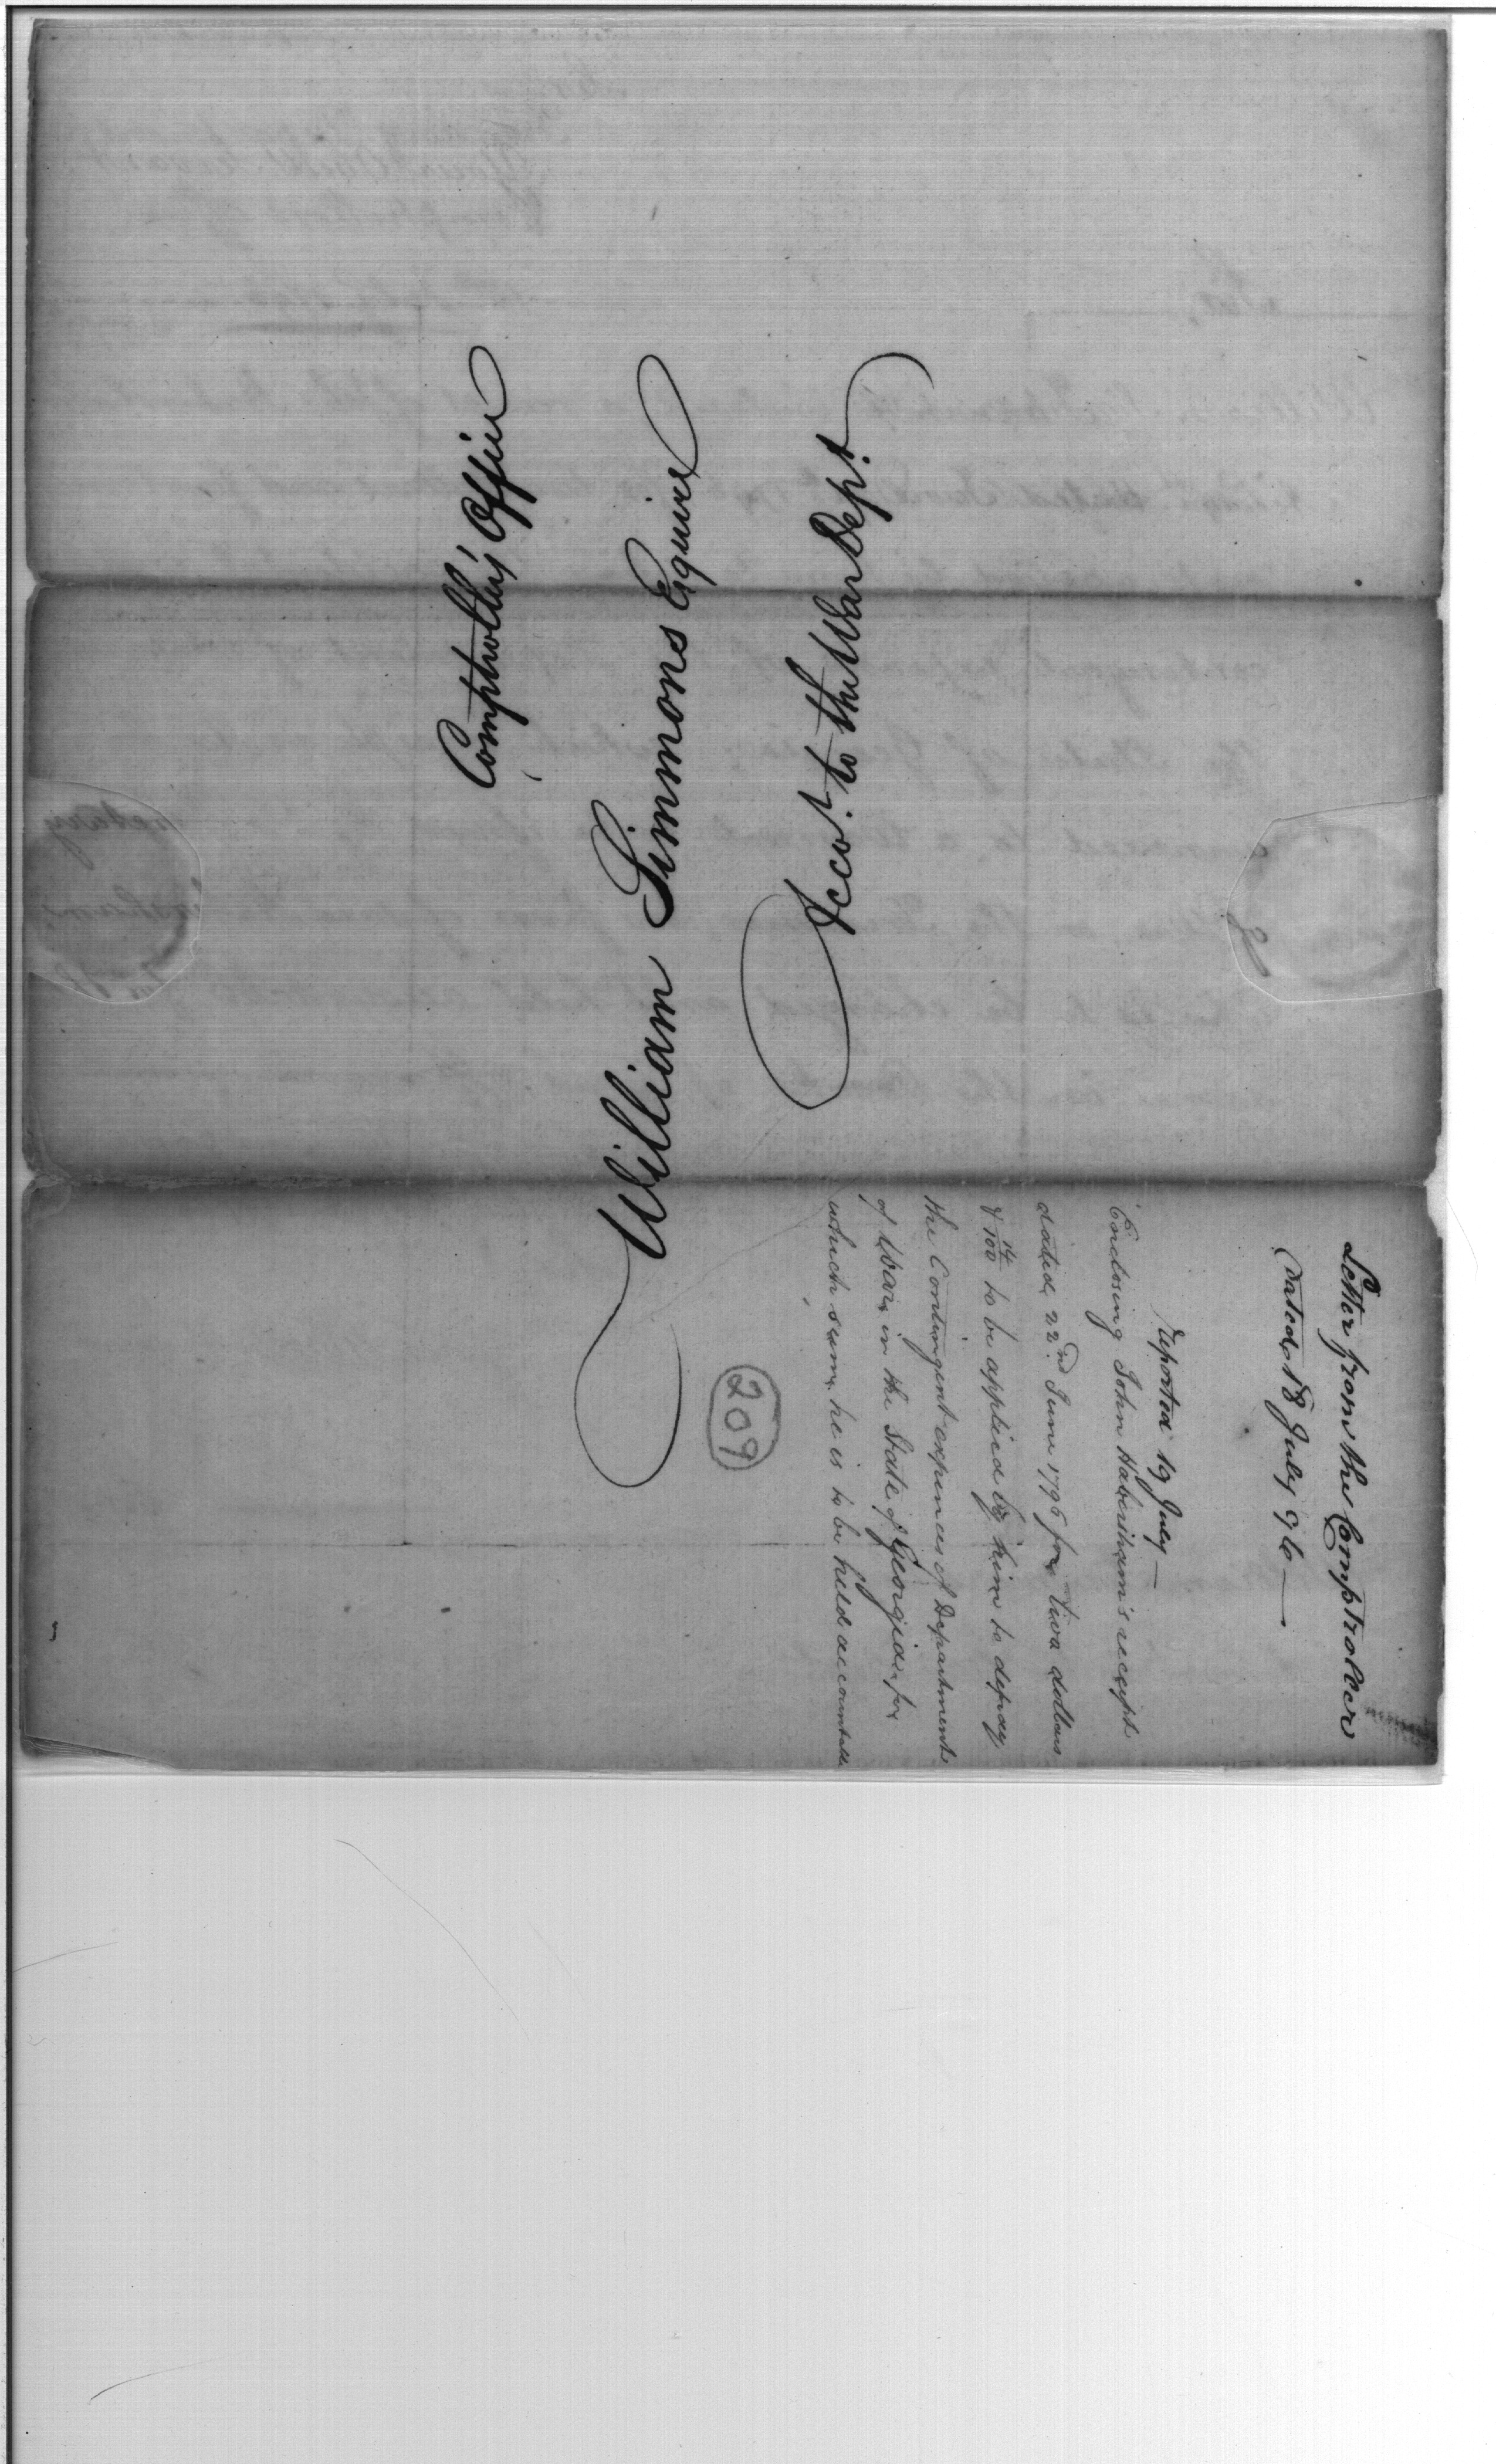 Comptroller's Office
William Simmons Esquire
Accot. to the War Dept.
Letter from the Comptroller
Dated 18 July 96 —
Reported 19 July —
Enclosing John Habersham's receipt
dated 22nd. June 1796 for two dollars
& 14/100 to be applied by him to defray
the Contingent expences of Department
of War, in the State of Georgia, for
which sum, he is to be held accountable
209